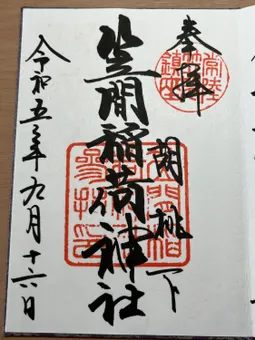 奉拝
常陸
鎮座
胡桃下
笠間稲荷神社
令和五年九月十六日